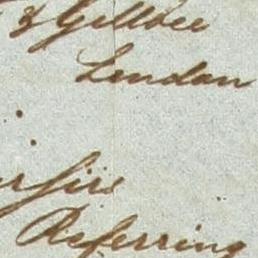 & Gillbee
London
Referring